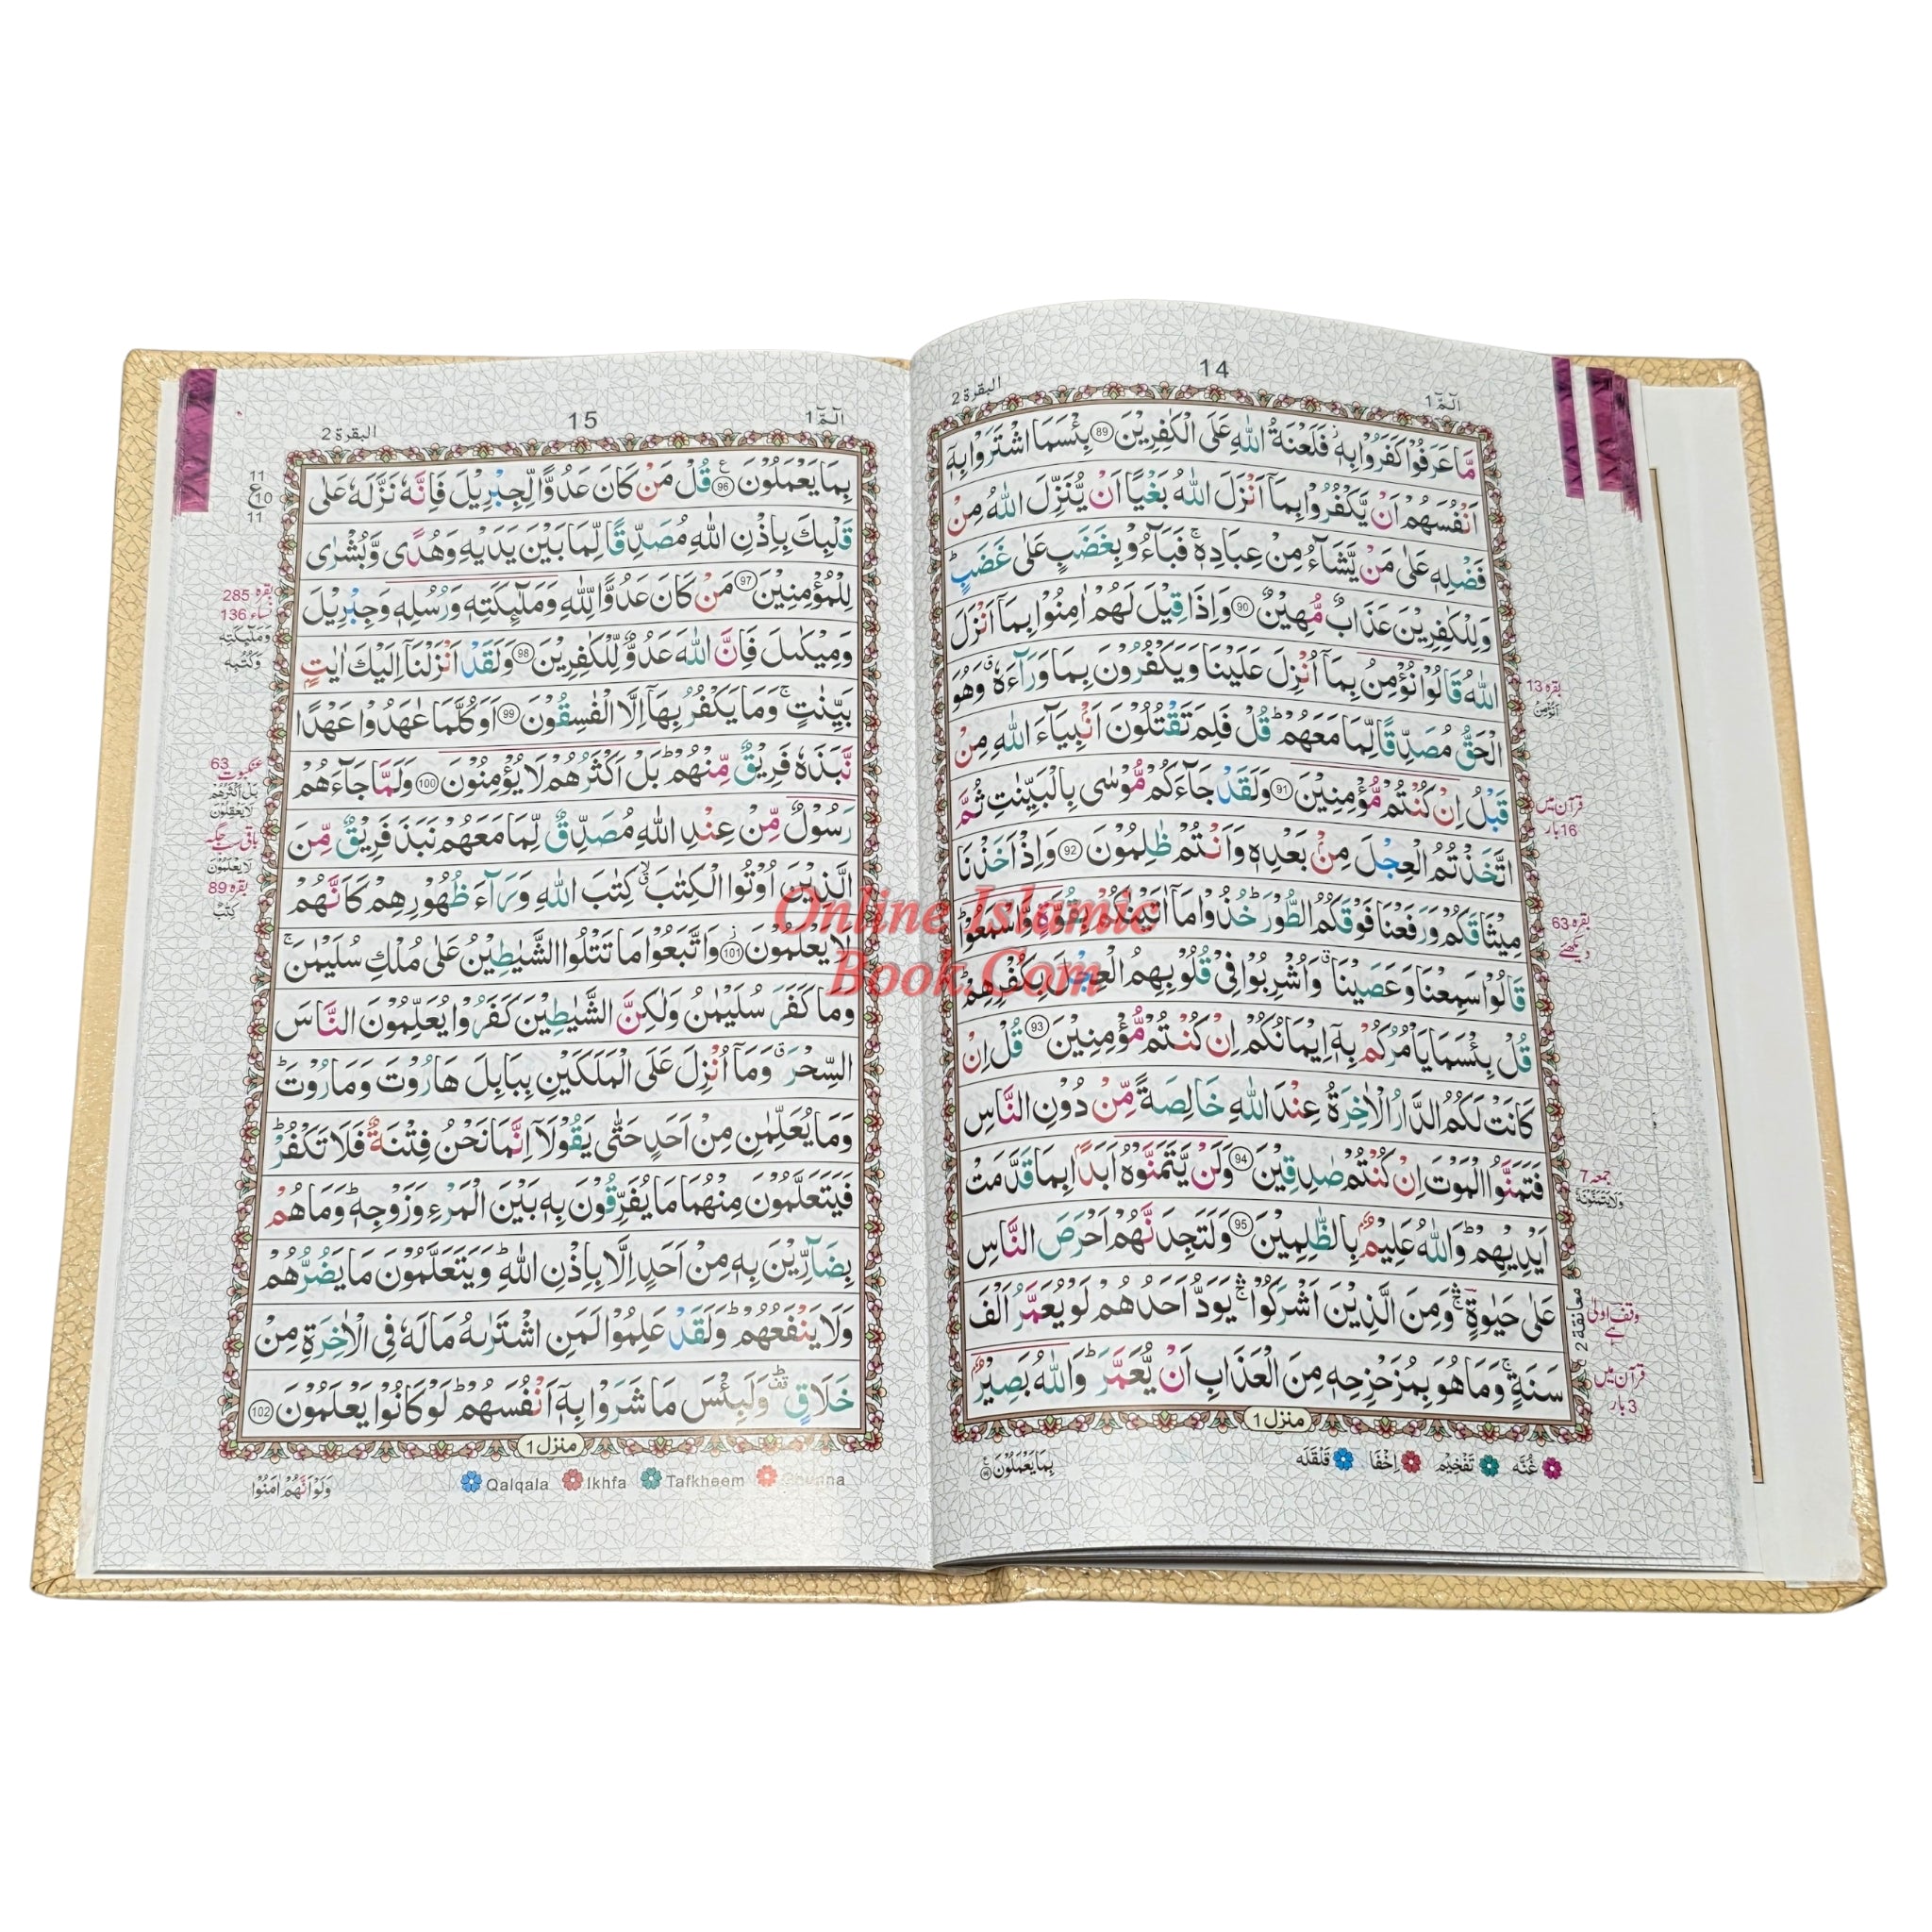 البقرة 2
14
الٓمّٓ 1
مَّا عَرَفُوْا كَفَرُوْا بِهٖ٘ فَلَعْنَةُ اللّٰهِ عَلَى الْكٰفِرِيْنَ 89 بِئْسَمَا اشْتَرَوْا بِهٖۤ
اَنْفُسَهُمْ اَنْ يَّكْفُرُوْا بِمَاۤ اَنْزَلَ اللّٰهُ بَغْيًا اَنْ يُّنَزِّلَ اللّٰهُ مِنْ
فَضْلِهٖ عَلٰى مَنْ يَّشَآءُ مِنْ عِبَادِهٖۚ فَبَآءُوْ بِغَضَبٍ عَلٰى غَضَبٍؕ
وَلِلْكٰفِرِيْنَ عَذَابٌ مُّهِيْنٌ 90 وَاِذَا قِيْلَ لَهُمْ اٰمِنُوْا بِمَاۤ اَنْزَلَ
اللّٰهُ قَالُوْا نُؤْمِنُ بِمَاۤ اُنْزِلَ عَلَيْنَا وَيَكْفُرُوْنَ بِمَا وَرَآءَهٗۗ وَهُوَ
الْحَقُّ مُصَدِّقًا لِّمَا مَعَهُمْؕ قُلْ فَلِمَ تَقْتُلُوْنَ اَنْۢبِيَآءَ اللّٰهِ مِنْ
قَبْلُ اِنْ كُنْتُمْ مُّؤْمِنِيْنَ 91 وَلَقَدْ جَآءَكُمْ مُّوْسٰى بِالْبَيِّنٰتِ ثُمَّ
اتَّخَذْتُمُ الْعِجْلَ مِنْۢ بَعْدِهٖ وَاَنْتُمْ ظٰلِمُوْنَ 92 وَاِذْ اَخَذْنَا
مِيْثَاقَكُمْ وَرَفَعْنَا فَوْقَكُمُ الطُّوْرَؕ خُذُوْا مَاۤ اٰتَيْنٰكُمْ بِقُوَّةٍ وَّاسْمَعُوْاؕ
قَالُوْا سَمِعْنَا وَعَصَيْنَاۗ وَاُشْرِبُوْا فِيْ قُلُوْبِهِمُ الْعِجْلَ بِكُفْرِهِمْؕ
قُلْ بِئْسَمَا يَاْمُرُكُمْ بِهٖۤ اِيْمَانُكُمْ اِنْ كُنْتُمْ مُّؤْمِنِيْنَ 93 قُلْ اِنْ
كَانَتْ لَكُمُ الدَّارُ الْاٰخِرَةُ عِنْدَ اللّٰهِ خَالِصَةً مِّنْ دُوْنِ النَّاسِ
فَتَمَنَّوُا الْمَوْتَ اِنْ كُنْتُمْ صٰدِقِيْنَ 94 وَلَنْ يَّتَمَنَّوْهُ اَبَدًۢا بِمَا قَدَّمَتْ
اَيْدِيْهِمْؕ وَاللّٰهُ عَلِيْمٌۢ بِالظّٰلِمِيْنَ 95 وَلَتَجِدَنَّهُمْ اَحْرَصَ النَّاسِ
عَلٰى حَيٰوةٍۛۚ وَمِنَ الَّذِيْنَ اَشْرَكُوْاۛۚ يَوَدُّ اَحَدُهُمْ لَوْ يُعَمَّرُ اَلْفَ
سَنَةٍۚ وَمَا هُوَ بِمُزَحْزِحِهٖ مِنَ الْعَذَابِ اَنْ يُّعَمَّرَؕ وَاللّٰهُ بَصِيْرٌۢ
منزل 1
بقرہ 13
اَنُؤْمِنُ
قرآن میں
16 بار
بقرہ 63
دیکھئے
جمعہ 7
وَلَا يَتَمَنَّوْنَهٗ
معانقة 2
وقف اولٰی
ہے
قرآن میں
3 بار
غُنَّه اِخْفَا تَفْخِيْم قَلْقَلَه
بِمَا يَعْمَلُوْنَ
الٓمّٓ 1
15
البقرة 2
بِمَا يَعْمَلُوْنَ 96 قُلْ مَنْ كَانَ عَدُوًّا لِّجِبْرِيْلَ فَاِنَّهٗ نَزَّلَهٗ عَلٰى
قَلْبِكَ بِاِذْنِ اللّٰهِ مُصَدِّقًا لِّمَا بَيْنَ يَدَيْهِ وَهُدًى وَّبُشْرٰى
لِلْمُؤْمِنِيْنَ 97 مَنْ كَانَ عَدُوًّا لِّلّٰهِ وَمَلٰٓئِكَتِهٖ وَرُسُلِهٖ وَجِبْرِيْلَ
وَمِيْكٰىلَ فَاِنَّ اللّٰهَ عَدُوٌّ لِّلْكٰفِرِيْنَ 98 وَلَقَدْ اَنْزَلْنَاۤ اِلَيْكَ اٰيٰتٍۭ
بَيِّنٰتٍۚ وَمَا يَكْفُرُ بِهَاۤ اِلَّا الْفٰسِقُوْنَ 99 اَوَكُلَّمَا عٰهَدُوْا عَهْدًا
نَّبَذَهٗ فَرِيْقٌ مِّنْهُمْؕ بَلْ اَكْثَرُهُمْ لَا يُؤْمِنُوْنَ 100 وَلَمَّا جَآءَهُمْ
رَسُوْلٌ مِّنْ عِنْدِ اللّٰهِ مُصَدِّقٌ لِّمَا مَعَهُمْ نَبَذَ فَرِيْقٌ مِّنَ
الَّذِيْنَ اُوْتُوا الْكِتٰبَۙۗ كِتٰبَ اللّٰهِ وَرَآءَ ظُهُوْرِهِمْ كَاَنَّهُمْ
لَا يَعْلَمُوْنَ 101 وَاتَّبَعُوْا مَا تَتْلُوا الشَّيٰطِيْنُ عَلٰى مُلْكِ سُلَيْمٰنَۚ
وَمَا كَفَرَ سُلَيْمٰنُ وَلٰكِنَّ الشَّيٰطِيْنَ كَفَرُوْا يُعَلِّمُوْنَ النَّاسَ
السِّحْرَۗ وَمَاۤ اُنْزِلَ عَلَى الْمَلَكَيْنِ بِبَابِلَ هَارُوْتَ وَمَارُوْتَؕ
وَمَا يُعَلِّمٰنِ مِنْ اَحَدٍ حَتّٰى يَقُوْلَاۤ اِنَّمَا نَحْنُ فِتْنَةٌ فَلَا تَكْفُرْؕ
فَيَتَعَلَّمُوْنَ مِنْهُمَا مَا يُفَرِّقُوْنَ بِهٖ بَيْنَ الْمَرْءِ وَزَوْجِهٖؕ وَمَا هُمْ
بِضَآرِّيْنَ بِهٖ مِنْ اَحَدٍ اِلَّا بِاِذْنِ اللّٰهِؕ وَيَتَعَلَّمُوْنَ مَا يَضُرُّهُمْ
وَلَا يَنْفَعُهُمْؕ وَلَقَدْ عَلِمُوْا لَمَنِ اشْتَرٰىهُ مَا لَهٗ فِي الْاٰخِرَةِ مِنْ
خَلَاقٍؕ وَلَبِئْسَ مَا شَرَوْا بِهٖۤ اَنْفُسَهُمْؕ لَوْ كَانُوْا يَعْلَمُوْنَ 102
منزل 1
11
ع 10
11
بقرہ 285
نساء 136
وَمَلٰٓئِكَتِهٖ
وَكُتُبِهٖ
عنکبوت 63
بَلْ اَكْثَرُهُمْ
لَا يَعْقِلُوْنَ
باقی سب جگہ
لَا يَعْلَمُوْنَ
بقرہ 89
كِتٰبٌ
Qalqala Ikhfa Tafkheem Ghunna
وَلَوْ اَنَّهُمْ اٰمَنُوْا
Online Islamic
Book.Com